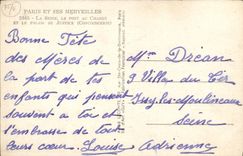 PARIS ET SES MERVEILLES
LA SEINE, LE PONT AU CHANGE
ET LE PALAIS DE JUSTICE (CONCIERGERIE)
Bonne Fête
des Mères de
la part de tes
enfants qui pensent
souvent à toi et
t'embrasse de tout
leurs cœur. Louise Adrienne
Mme Dréan
Villa du
Issy-les-Moulineaux
Seine